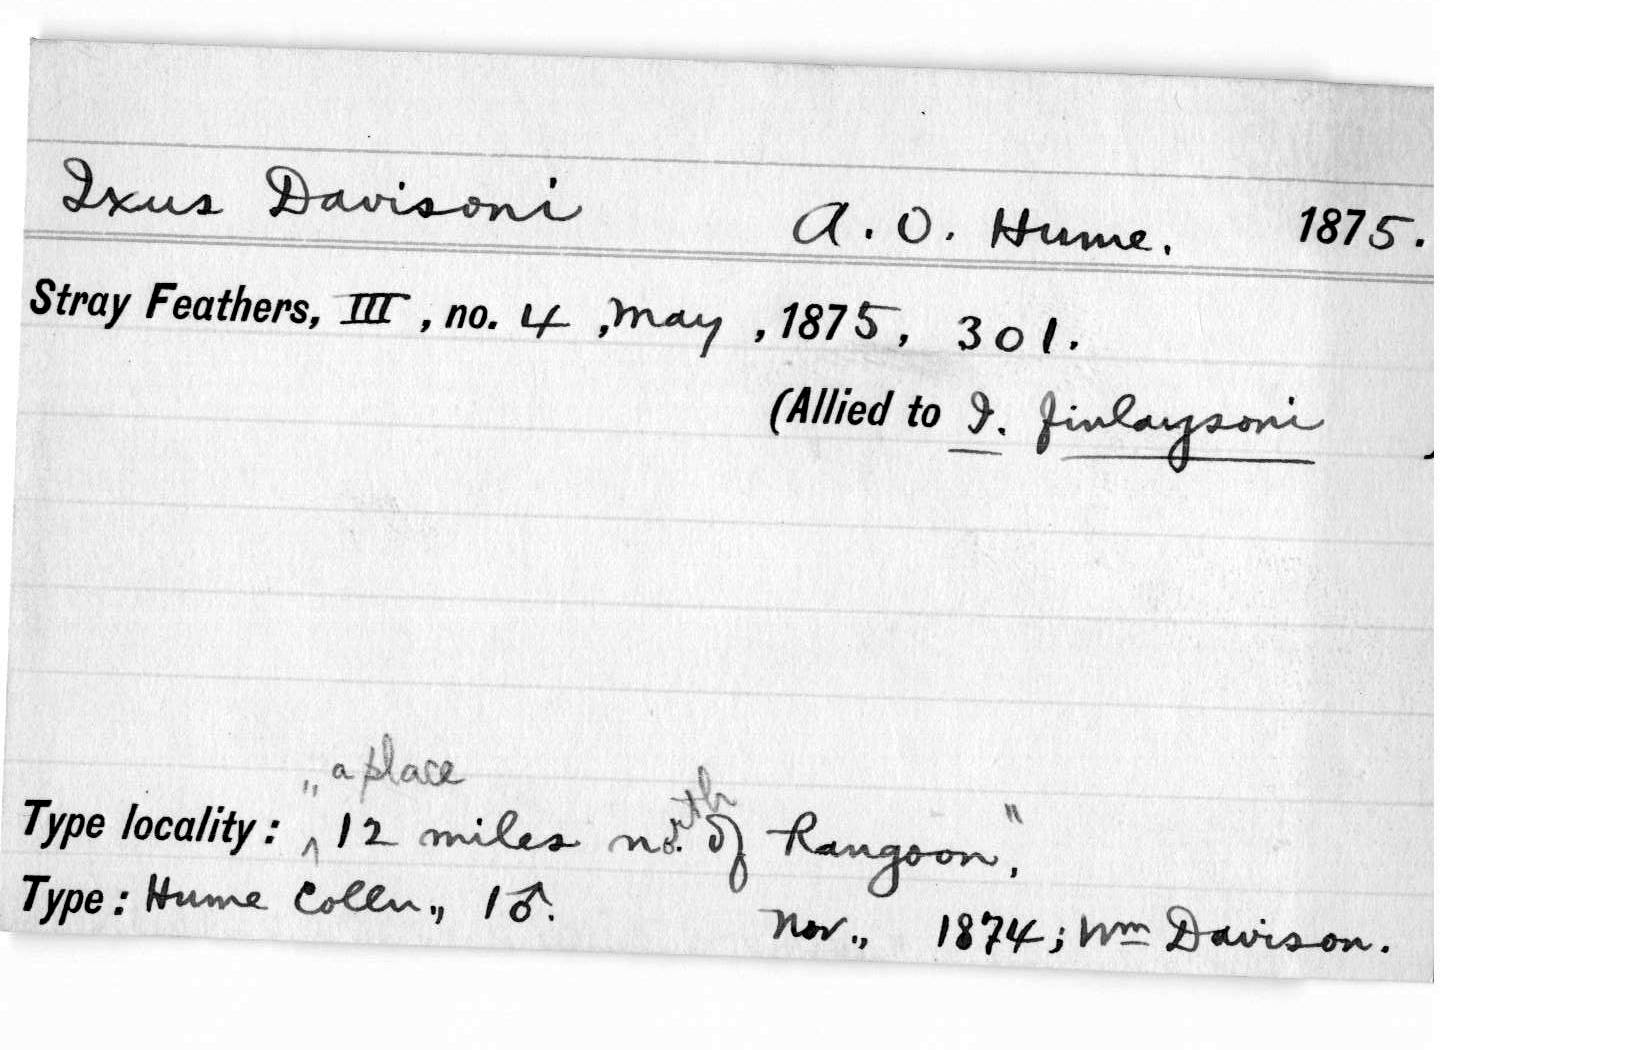 Ixus Davisoni A. O. Hume. 1875.
Stray Feathers, III, no. 4, May, 1875, 301.
(Allied to I. finlaysoni )
"a place
Type locality: ^ 12 miles north of Rangoon,"
Type: Hume Colln., 1♂. Nov., 1874; Wm Davison.